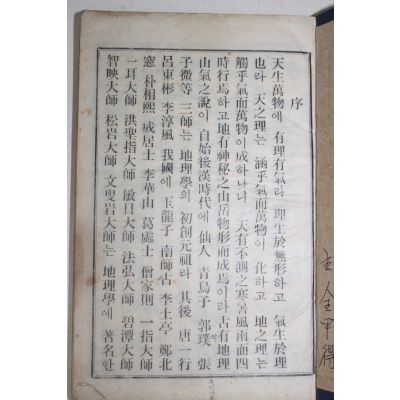 序
天生萬物에 有理有氣라 理生於無形하고 氣生於理
也라 天之理는 涵乎氣而萬物이 化하고 地之理는
觸乎氣而萬物이 成하나니 天有不測之寒暑風雨而四
時行焉하고 地有神秘之山岳物形而成焉이라 古有地理
山氣之說이 自始後漢時代에 仙人 靑烏子 郭璞 張
子微等 三師는 地理學의 初創元祖라 其後 唐一行
呂東彬 李淳風 我國에 玉龍子 南師古 李土亭 鄭北
窓 朴相熙 成居士 李華山 葛處士 僧家則 一指大師
一耳大師 洪聖指大師 敏目大師 法弘大師 碧潭大師
智映大師 松岩大師 文叟岩大師는 地理學에 著名한
主 金甲得